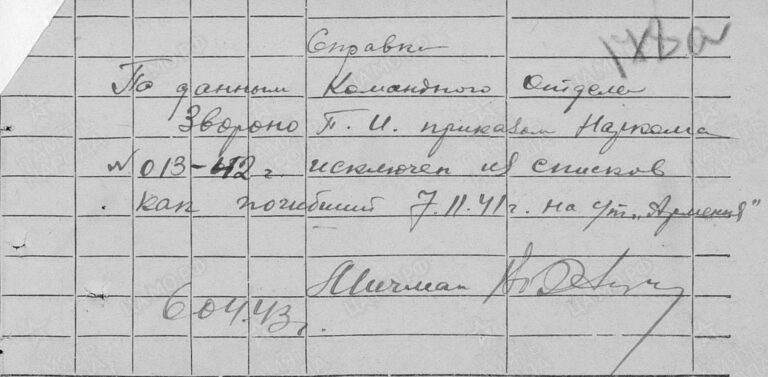 178а
Справка
По данным Командного Отдела
Звороно П. И. приказом Наркома
№ 013-42 г. исключен из списков
как погибший 7.11.41 г. на у/т „Армения"
Мичман
6 04.43 г.